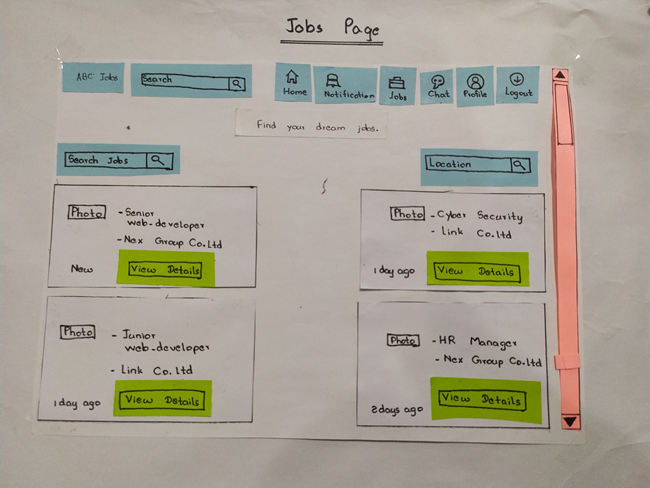 Jobs Page
ABC Jobs
Search
Home
Notification
Jobs
Chat
Profile
Logout
Find your dream jobs.
Search Jobs
Location
Photo
- Senior
web-developer
- Nex Group Co.ltd
New
View Details
Photo
- Cyber Security
- Link Co.ltd
1 day ago
View Details
Photo
- Junior
web-developer
- Link Co.ltd
1 day ago
View Details
Photo
- HR Manager
- Nex Group Co.ltd
2 days ago
View Details